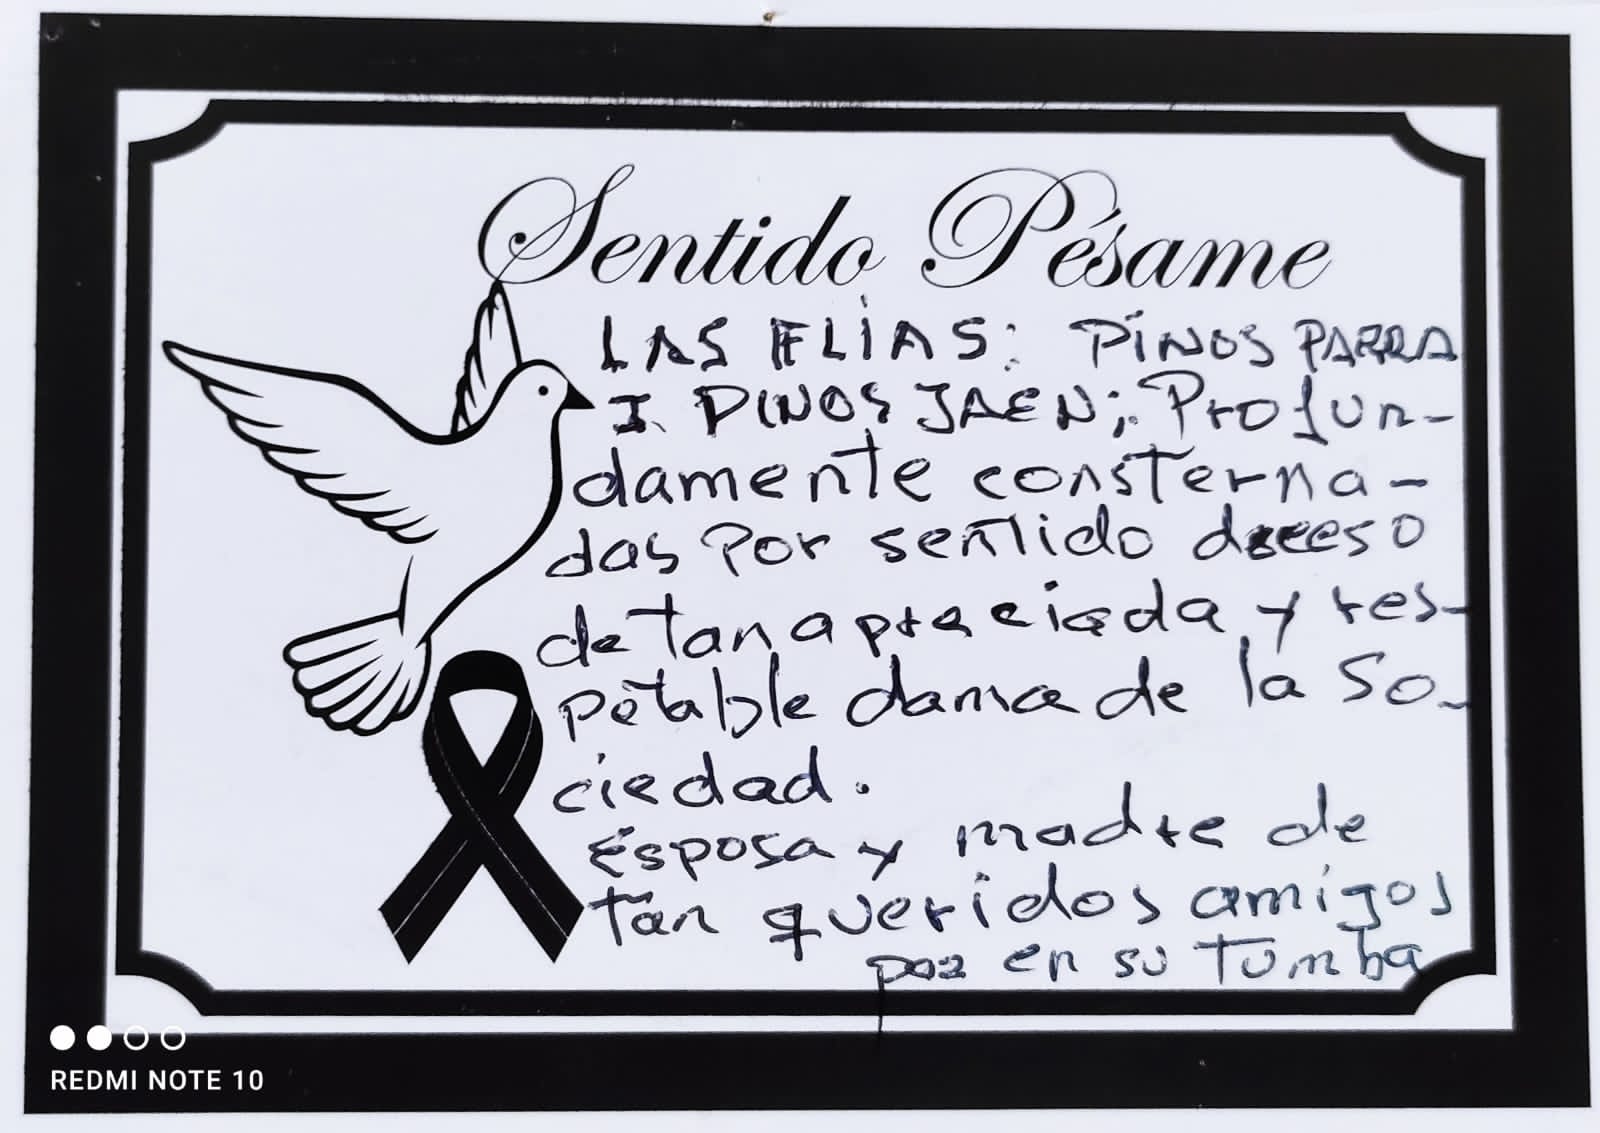 Sentido Pésame
LAS FLIAS: PINOS PARRA
I PINOS JAEN; Profun-
damente consterna-
das Por sentido deceso
de tan apreciada y res-
petable dama de la So-
ciedad.
Esposa y madre de
tan queridos amigos
paz en su tumba
REDMI NOTE 10